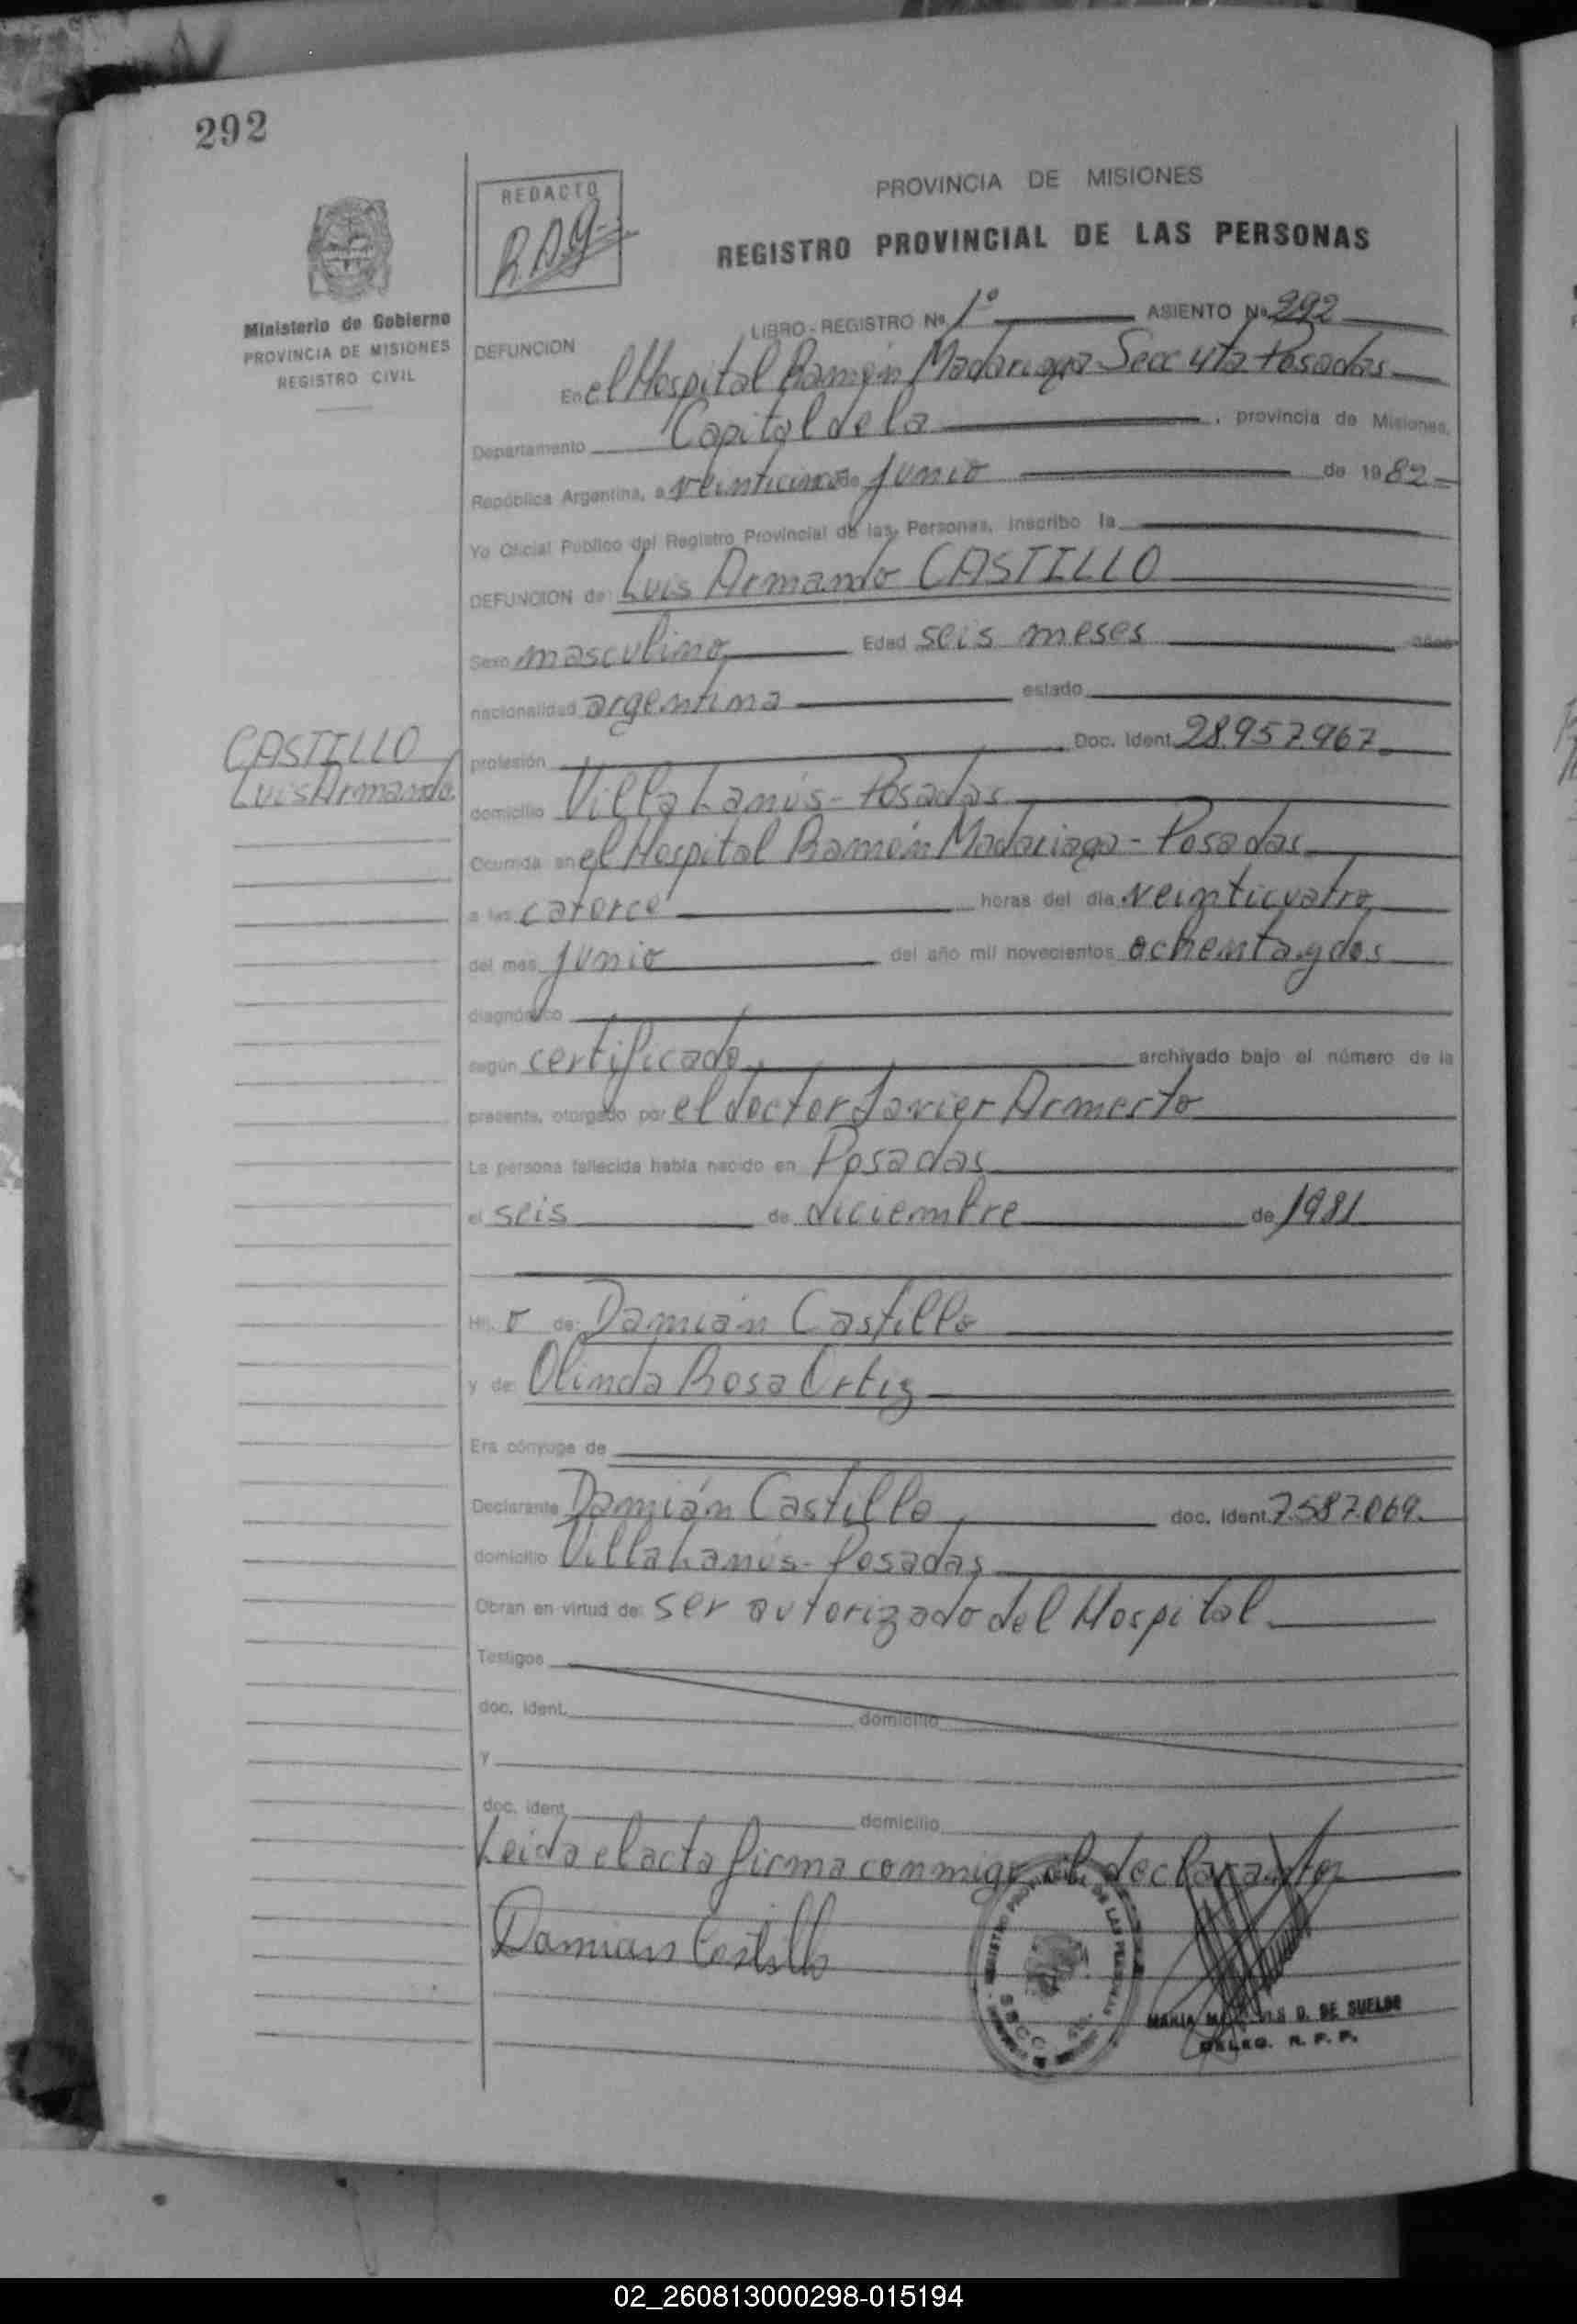 292
REDACTO
R.A.G.
PROVINCIA DE MISIONES
REGISTRO PROVINCIAL DE LAS PERSONAS
Ministerio de Gobierno
PROVINCIA DE MISIONES
REGISTRO CIVIL
LIBRO-REGISTRO Nº 1º ASIENTO Nº 292
DEFUNCION
En el Hospital Ramón Madariaga Secc 4ta Posadas
Departamento Capital de la , provincia de Misiones,
República Argentina, a veinticinco de Junio de 1982
Yo Oficial Público del Registro Provincial de las Personas, inscribo la
DEFUNCION de: Luis Armando CASTILLO
Sexo masculino Edad seis meses años
nacionalidad argentina estado
CASTILLO
Luis Armando.
profesión Doc. Ident. 28.957.967
domicilio Villa Lanús - Posadas
Ocurrida en el Hospital Ramón Madariaga - Posadas
a las catorce horas del día veinticuatro
del mes Junio del año mil novecientos ochenta y dos
diagnóstico
según certificado archivado bajo el número de la
presente, otorgado por el doctor Javier Armesto
La persona fallecida había nacido en Posadas
el seis de diciembre de 1981
Hij o de: Damián Castillo
y de: Olinda Rosa Ortiz
Era cónyuge de
Declarante Damián Castillo doc. ident. 7.587.069.
domicilio Villa Lanús - Posadas
Obran en virtud de: ser autorizado del Hospital
Testigos
doc. ident. domicilio
y
doc. ident. domicilio
Leida el acta firma conmigo el declarante
Damian Castillo
REGISTRO PROVINCIAL DE LAS PERSONAS
MARIA D. DE SUELDO
DELEG. R. P. P.
02_260813000298-015194